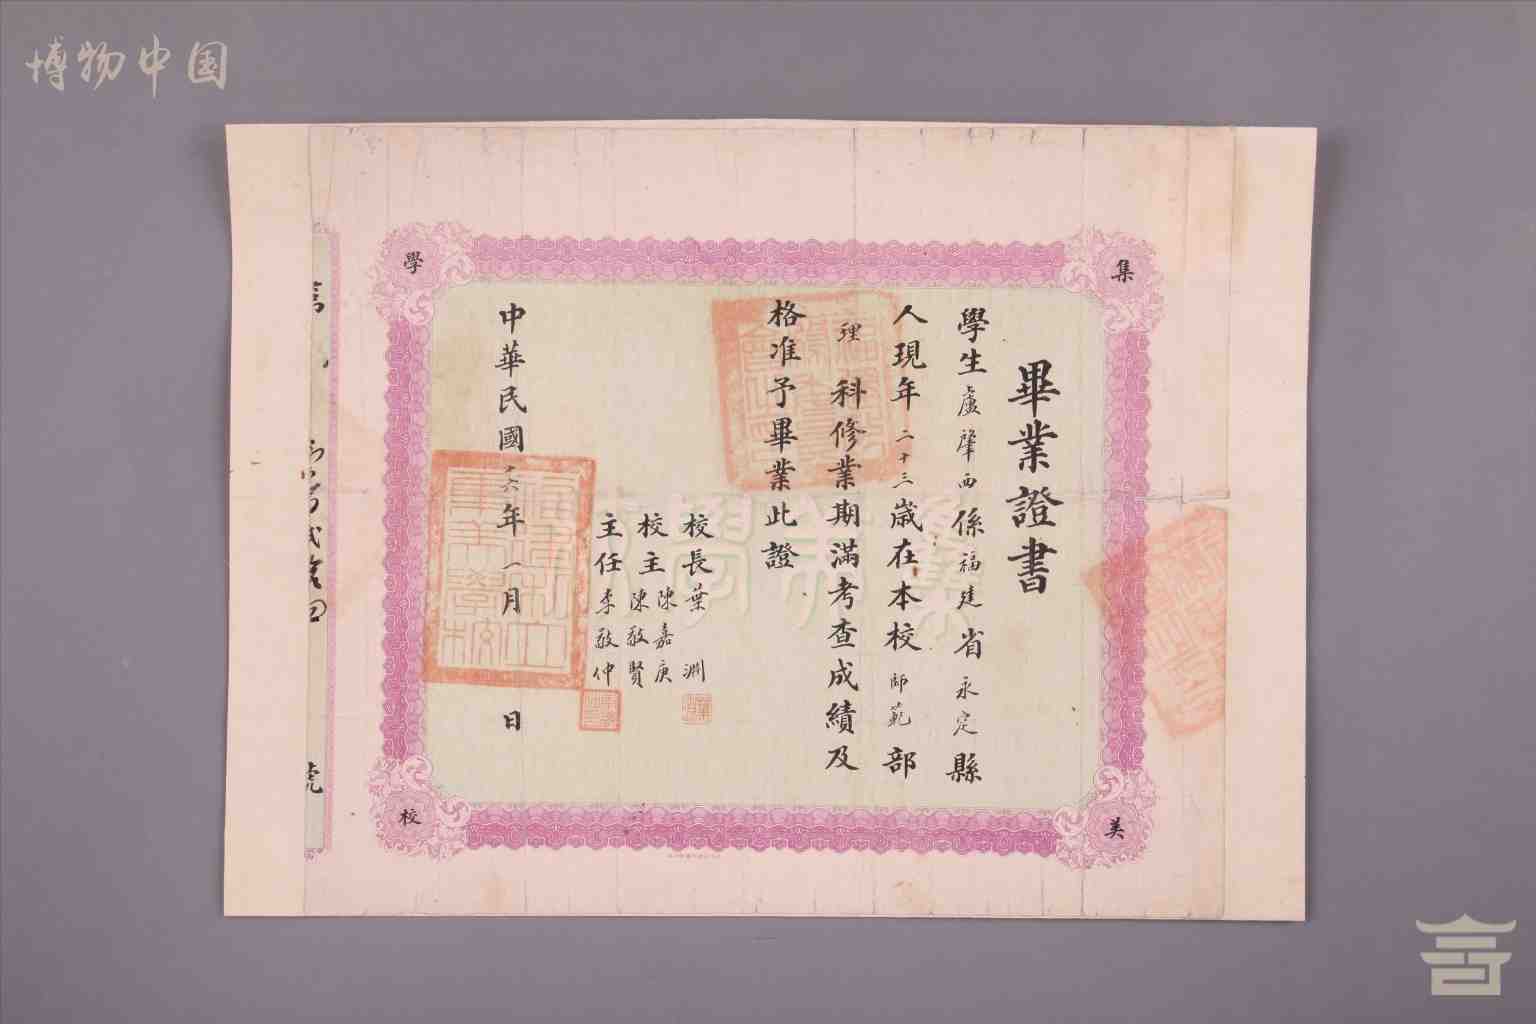 博物中国
集美學校
畢業證書
學生盧肇西係福建省永定縣
人現年二十三歲在本校師範部
理科修業期滿考查成績及
格准予畢業此證
校長葉淵
校主陳嘉庚
陳敬賢
主任李敬仲
中華民國十六年一月日
號